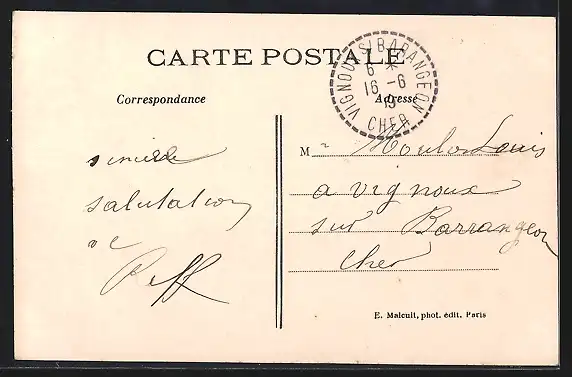 CARTE POSTALE
VIGNOUX S/BARANGEON
6 *
16 - 6
19
CHER
Correspondance
Adresse
sincère
salutation
M r Moulon Louis
a vignoux
sur Barrangeon
Cher
E. Malcuit, phot. édit. Paris